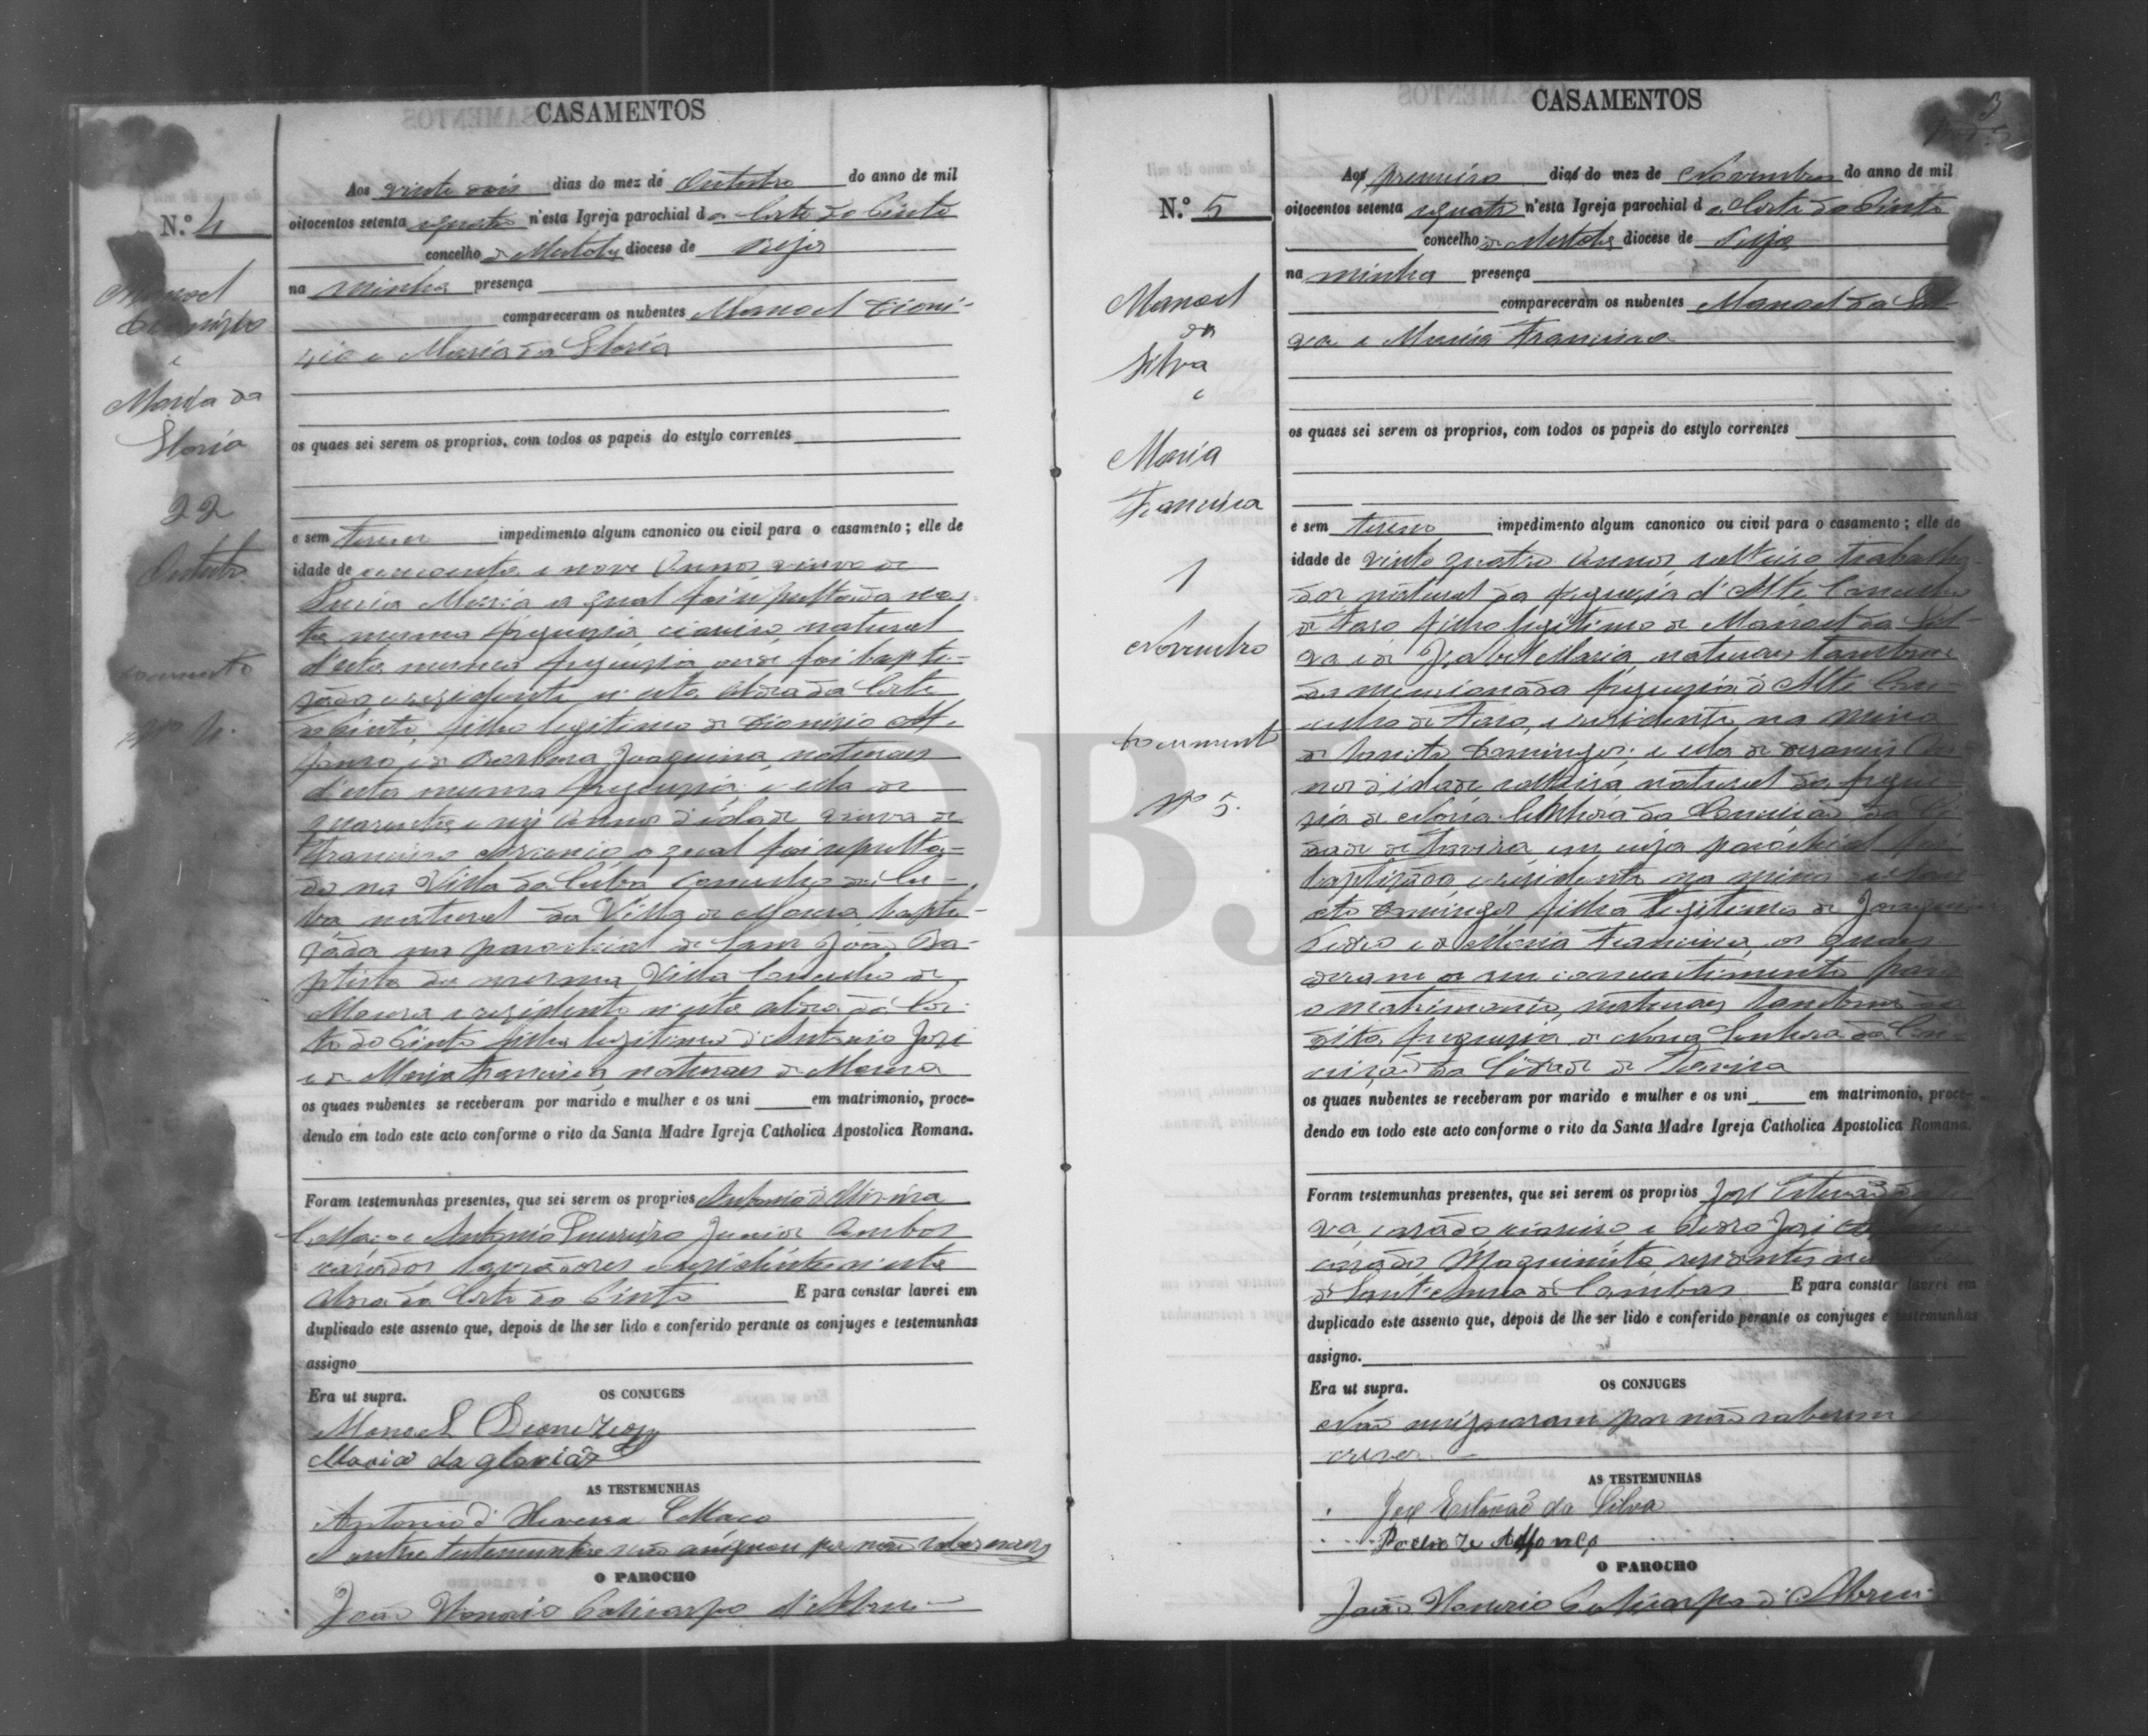 CASAMENTOS
N.º 4
Manoel
Dionizio
e
Maria da
Gloria
22
Outubro
Documento
Nº 4.
Aos vinte dois dias do mez de Outubro do anno de mil
oitocentos setenta e quatro n'esta Igreja parochial da Corte do Pinto
concelho de Mertola diocese de Beja
na minha presença
compareceram os nubentes Manoel Dioni-
zio e Maria da Gloria
os quaes sei serem os proprios, com todos os papeis do estylo correntes
e sem terem impedimento algum canonico ou civil para o casamento; elle de
idade de cincoenta e nove annos viuvo de
Luzia Maria a qual foi sepultada nes-
ta mesma freguezia natural
d'esta mesma freguezia onde foi bapti-
zado e rezidente n'esta aldea da Corte
do Pinto, filho legitimo de Dionizio Af-
fonso e de Barbara Joaquina, naturaes
d'esta mesma freguezia: e ella de
quarenta e seis annos d'idade viuva de
Francisco o qual foi sepulta-
do na Villa da Cuba Concelho de Cu-
ba natural da Villa de Moura bapti-
zada na parochial de Sam João Ba-
ptista da mesma Villa Concelho de
Moura e rezidente n'esta aldea da Cor-
te do Pinto filha legitima d'Antonio José
e de Maria Francisca, naturaes de Moura
os quaes nubentes se receberam por marido e mulher e os uni em matrimonio, proce-
dendo em todo este acto conforme o rito da Santa Madre Igreja Catholica Apostolica Romana.
Foram testemunhas presentes, que sei serem os proprios Antonio d'Oliveira
e Antonio Guerreiro Junior ambos
cazados lavradores e rezidentes n'esta
aldea da Corte do Pinto E para constar lavrei em
duplicado este assento que, depois de lhe ser lido e conferido perante os conjuges e testemunhas
assigno
Era ut supra. OS CONJUGES
Manoel Dionezio
Maria da gloria
AS TESTEMUNHAS
Antonio d'
A outra testemunha não assignou por não saber escrever
O PAROCHO
João Honorio Policarpo d'Abreu
CASAMENTOS
3
N.º 5
Manoel
da
Silva
e
Maria
Francisca
1
Novembro
Documento
Nº 5.
Aos primeiro dias do mez de Novembro do anno de mil
oitocentos setenta e quatro n'esta Igreja parochial da Corte do Pinto
concelho de Mertola diocese de Beja
na minha presença
compareceram os nubentes Manoel da Sil-
va e Maria Francisca
os quaes sei serem os proprios, com todos os papeis do estylo correntes
e sem terem impedimento algum canonico ou civil para o casamento; elle de
idade de vinte quatro annos solteiro trabalha-
dor natural da freguezia d'Alte Concelho
de Faro filho legitimo de Manoel da Sil-
va e de Izabel Maria, naturaes tambem
da mencionada freguezia d'Alte Con-
celho de Faro, e rezidente na mina
de Sam Domingos: e ella de dezaseis an-
nos d'idade solteira natural da fregue-
zia de Nossa Senhora da Conceição da Ci-
dade de Tavira em cuja parochial foi
baptizada e rezidente na mina de Sam
Domingos filha legitima de Joaquim
Pedro e de Maria Francisca, os quaes
deram o seu consentimento para
o matrimonio, naturaes tambem da
dita freguezia de Nossa Senhora da Con-
ceição da Cidade de Tavira
os quaes nubentes se receberam por marido e mulher e os uni em matrimonio, proce-
dendo em todo este acto conforme o rito da Santa Madre Igreja Catholica Apostolica Romana.
Foram testemunhas presentes, que sei serem os proprios José Estevão da Sil-
va, cazado, e Pedro José
cazado, Maquinista, rezidentes na
de Sant'Anna de Cambas E para constar lavrei em
duplicado este assento que, depois de lhe ser lido e conferido perante os conjuges e testemunhas
assigno.
Era ut supra. OS CONJUGES
Não assignaram por não saberem es-
crever.
AS TESTEMUNHAS
José Estevão da Silva
Pedro Ze Affonço
O PAROCHO
João Honorio Policarpo d'Abreu
ADBJA